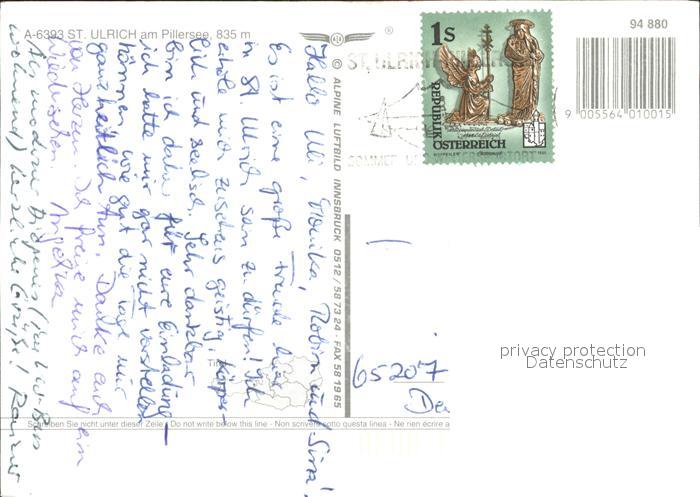 A-6393 ST. ULRICH am Pillersee, 835 m
®
94 880
1s
REPUBLIK
ÖSTERREICH
9 005564 010015
© ALPINE LUFTBILD INNSBRUCK 0512/58 73 24 · FAX 58 19 65
Hallo Uli, Monika, Robin und Sina!
Es ist eine große Freude hier
in St. Ulrich sein zu dürfen! Ich
erhole mich zusehens geistig, körper-
lich und seelisch. Sehr dankbar
bin ich dabei für eure Einladung –
ich hatte mir gar nicht vorstellen
können wie gut die Tage mir
ganzheitlich tun. Danke euch
von Herzen. Ich freue mich auf ein
Wiedersehen Angelika
Als moderner Diogenes (im
wohnend) herzliche Grüße! Rainer
65207
privacy protection
Datenschutz
Schreiben Sie nicht unter dieser Zeile · Do not write below this line - Non scrivere sotto questa linea - Ne rien écrire a